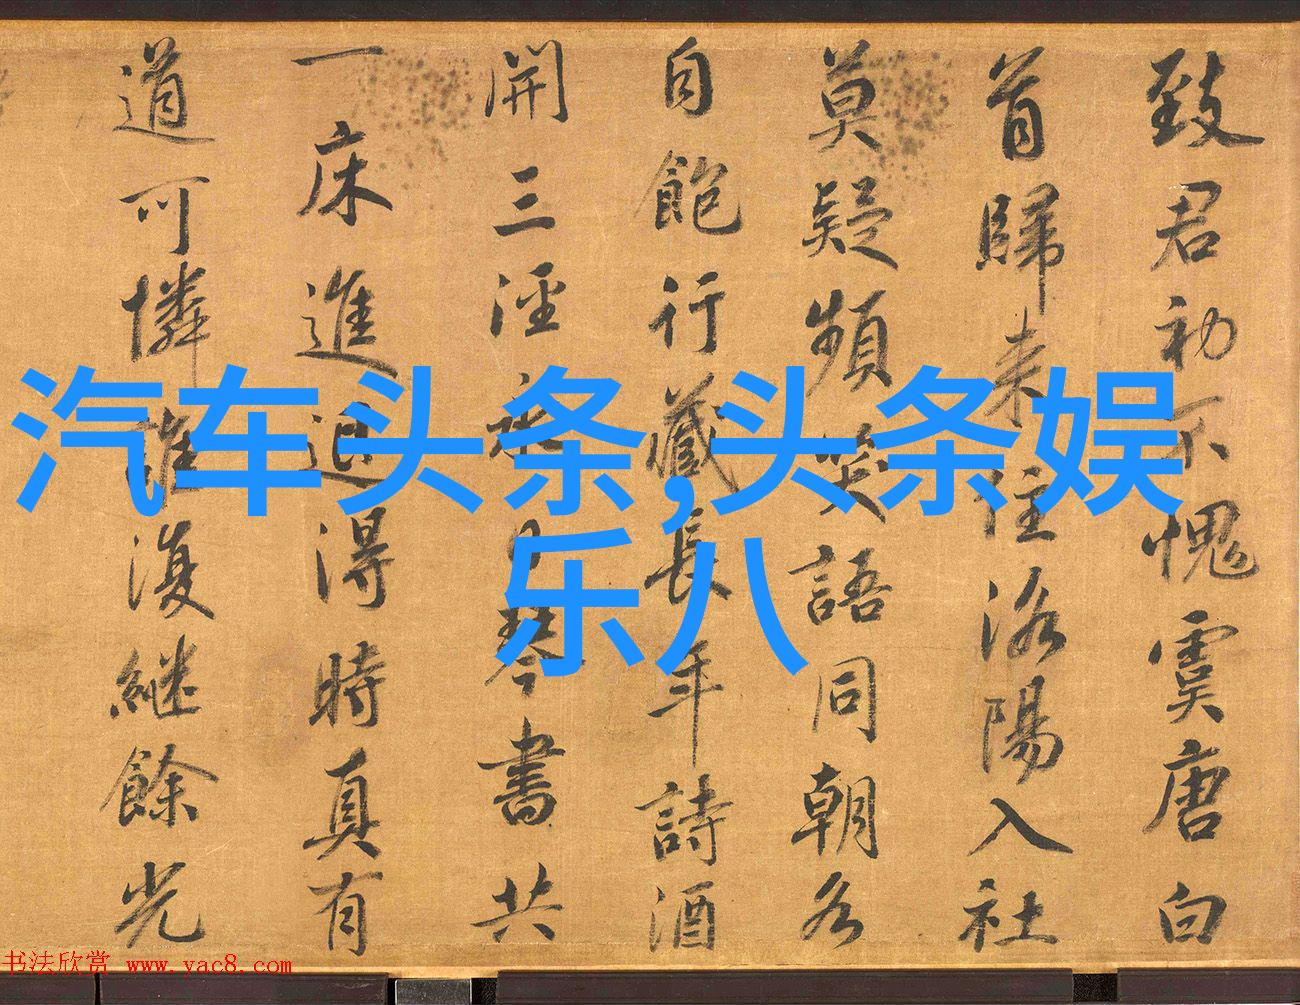 致君初不愧虞唐白
首歸来住洛陽入社
莫疑頻笑語同朝各
自飽行藏長年詩酒
開三涇永日琴書共
一床進退得時真有
道可憐誰復継餘光
汽车头条,头条娱
乐八
书法欣赏 www.yac8.com